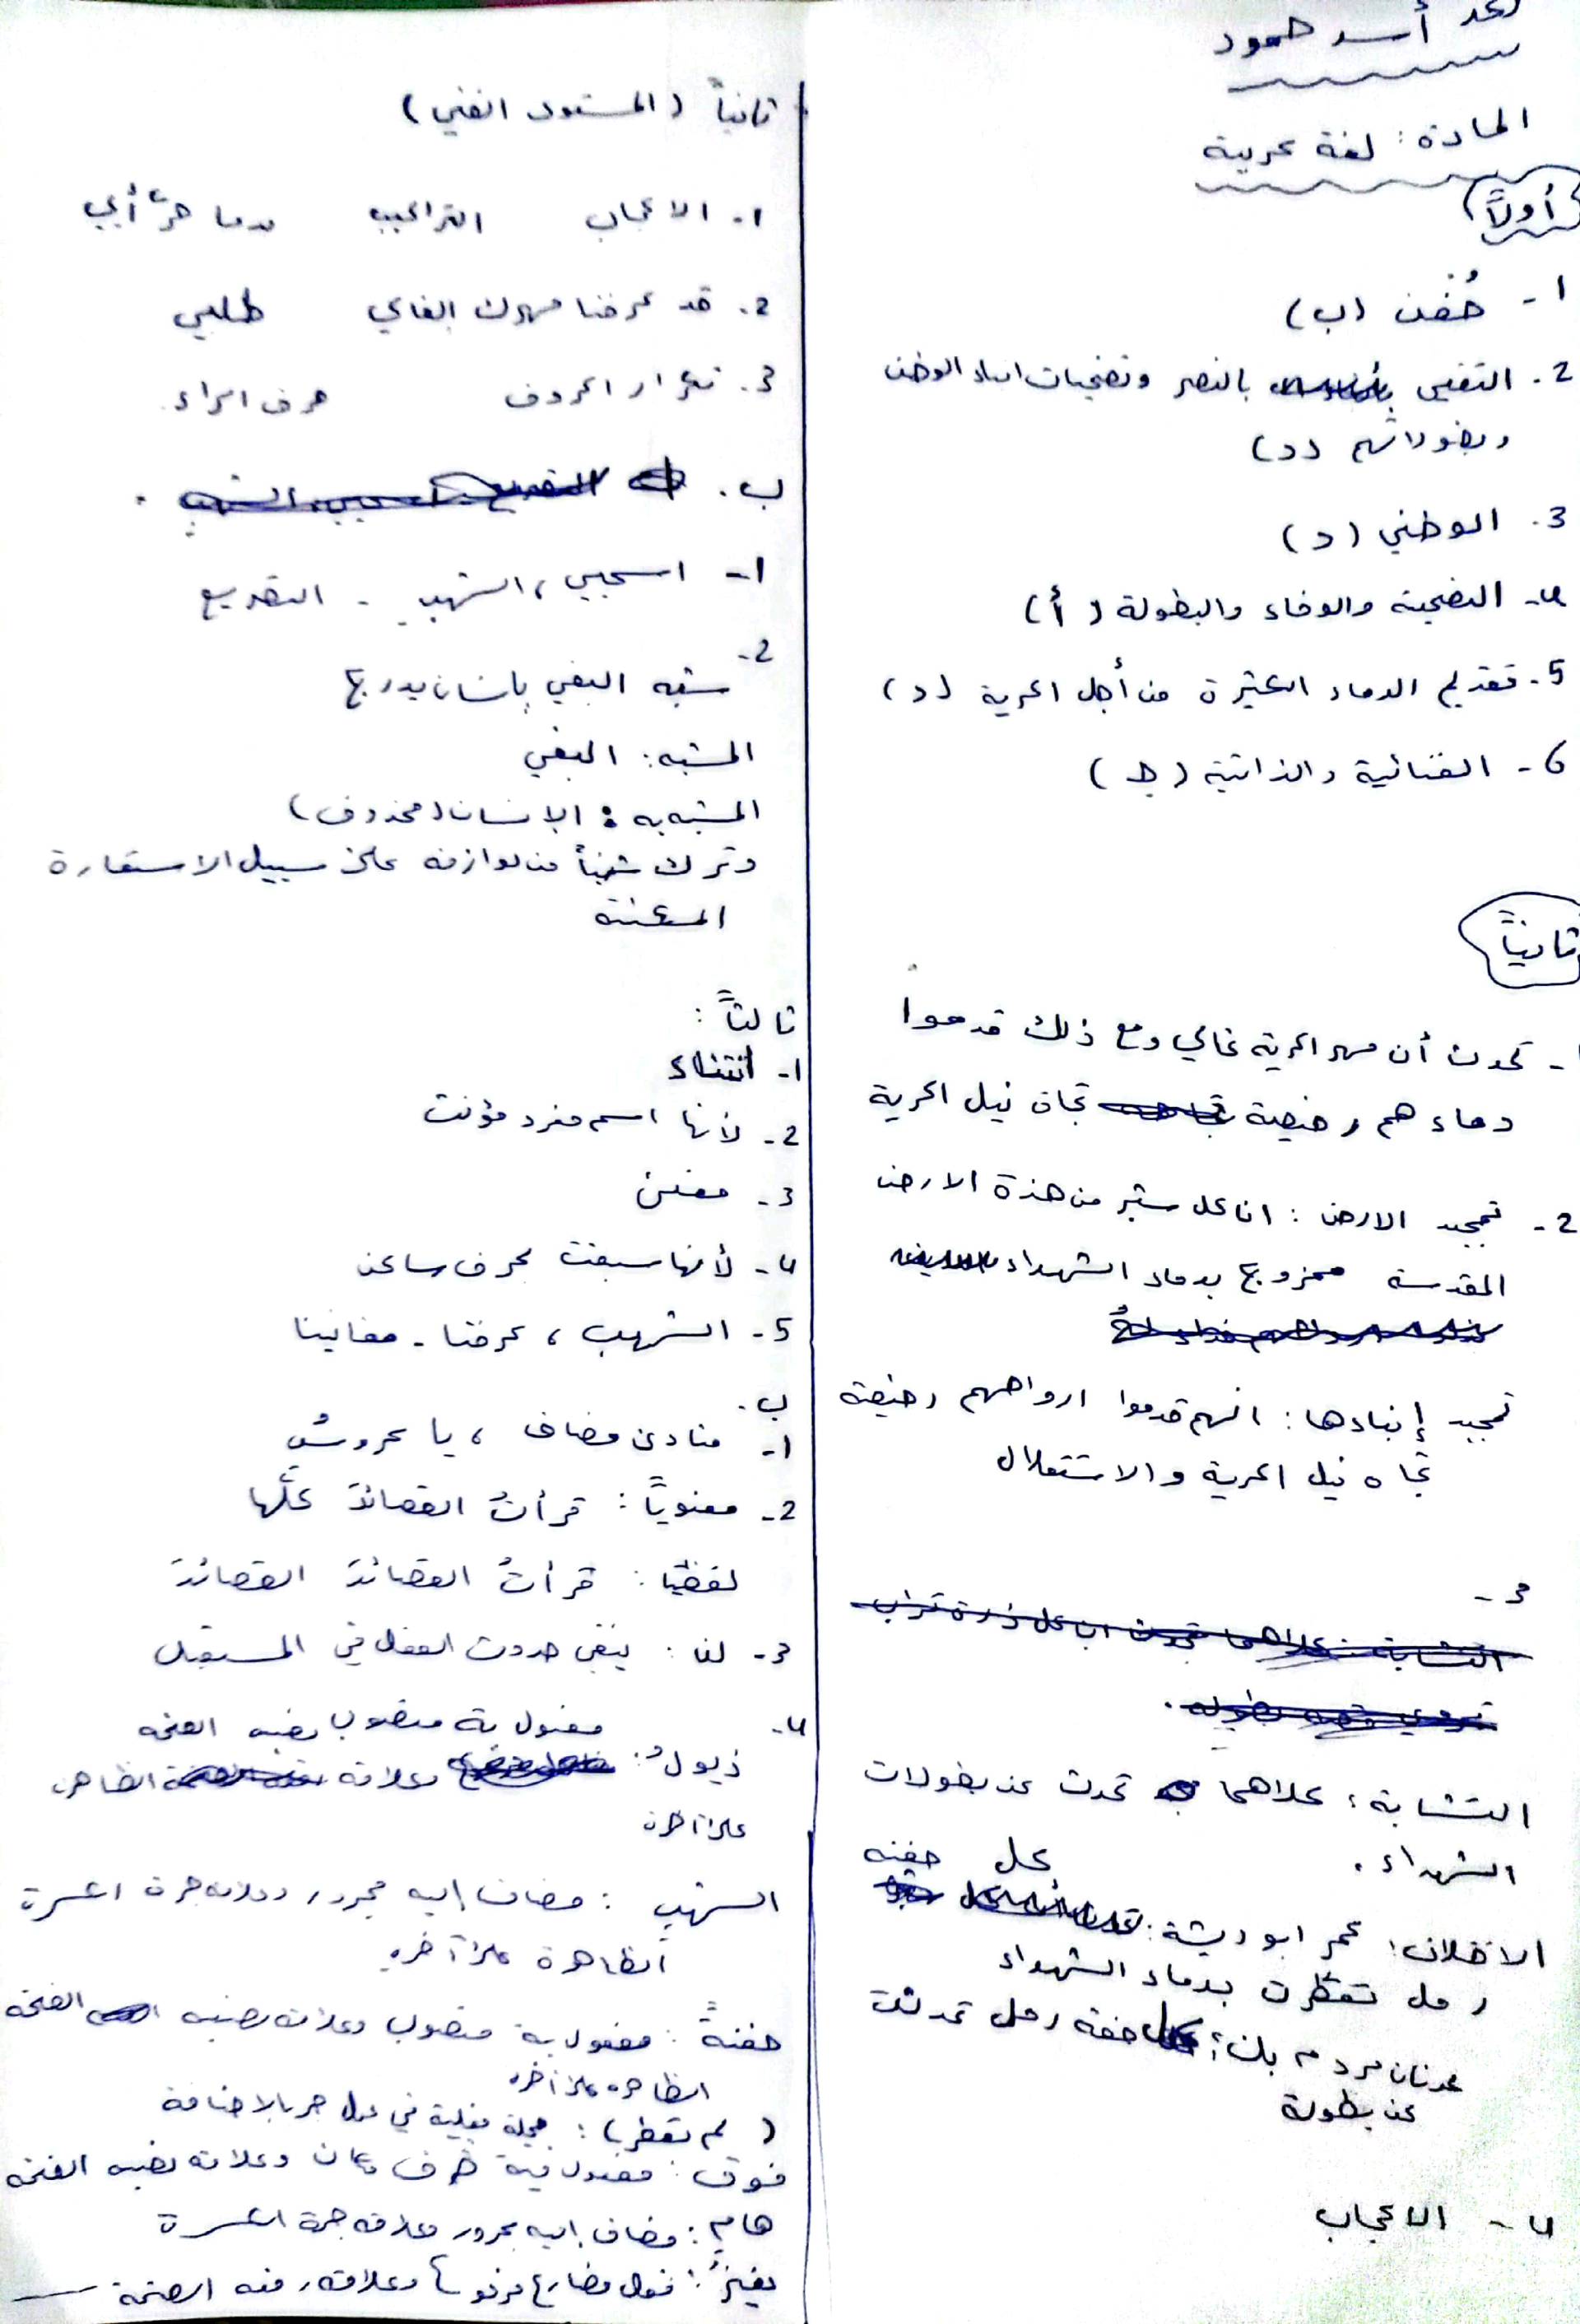 أسد حمود
المادة: لغة عربية
أولاً
1- حُفن (ب)
2. التغني بالنصر وتضحيات ابناء الوطن
وبطولاتهم (د)
3. الوطني (د)
4- التضحية والوفاء والبطولة (أ)
5. تقديم الدماء الكثيرة من أجل الحرية (د)
6- الغنائية والذاتية (ج)
ثانياً
1- تحدث أن مهر الحرية غالي ومع ذلك قدموا
دماءهم رخيصة تجاه نيل الحرية
2- تمجيد الارض: ان كل شبر من هذة الارض
المقدسة ممزوج بدماء الشهداء
تمجيد إبناءها: انهم قدموا ارواحهم رخيصة
تجاه نيل الحرية والاستقلال
3-
التشابة: كلاهما تحدث عن بطولات
الشهداء.
الاختلاف: عمر ابو ريشة: كل حفنه
رمل تعطرت بدماء الشهداء
عدنان مردم بك: كل حفنة رمل تحدثت
عن بطولة
4- الاعجاب
ثانياً (المستوى الفني)
1. الاعجاب التراكيب دما حرّ أبي
2. قد عرفنا مهرك الغالي طلبي
3. تكرار الحروف حرف الراء.
ب.
1- اسحبي، الشهب - التصريع
2- شبه البغي بإنسان يدرج
المشبه: البغي
المشبه به: الإنسان (محذوف)
وترك شيئاً من لوازمه على سبيل الاستعارة
المكنية
ثالثاً:
1- انتشاء
2- لأنها اسم مفرد مؤنث
3-
4- لأنها سبقت بحرف ساكن
5- الشهب، عرفنا - مغانينا
ب.
1- منادى مضاف، يا عروسُ
2- معنوياً: قرأتُ القصائدَ كلَّها
لفظيا: قرأتُ القصائدَ القصائدَ
3- لن: ينفي حدوث الفعل في المستقبل
4- ذيولَ: مفعول به منصوب وعلامة نصبه الفتحه الظاهره
على آخره
الشهبِ: مضاف إليه مجرور وعلامه جره الكسرة
الظاهرة على آخره
حفنةً: مفعول به منصوب وعلامه نصبه الفتحه
الظاهره على آخره
(لم تعطر): جملة فعلية في محل جر بالاضافة
فوق: مفعول فية ظرف مكان وعلامه نصبه الفتحه
هامِ: مضاف إليه مجرور وعلامه جرة الكسرة
فعل مضارع مرفوع وعلامة رفعه الضمة